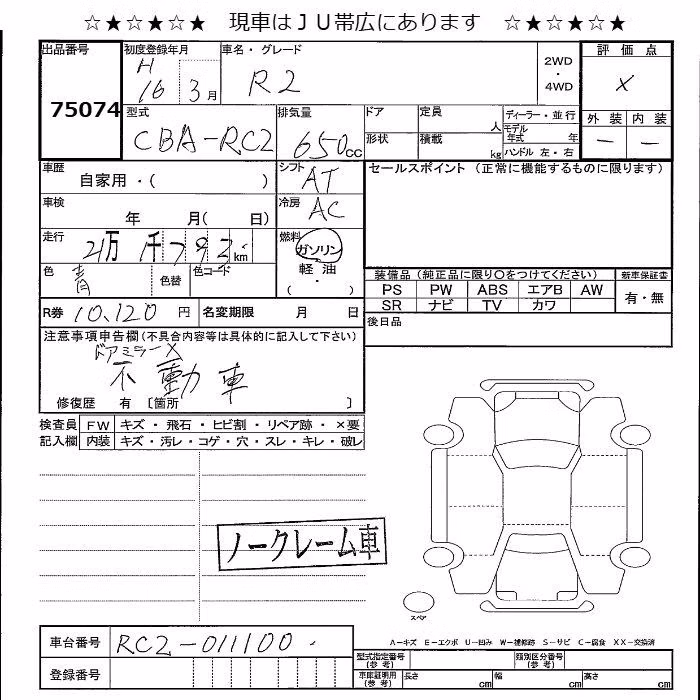 ☆★☆★☆★ 現車はＪＵ帯広にあります ☆★☆★☆★
出品番号 75074
初度登録年月 H 16 3月
車名・グレード R2
2WD・4WD
評価点 X
外装 内装
― ―
型式 CBA-RC2
排気量 650cc
ドア 形状
定員 人
積載 kg
ディーラー・並行
モデル年式 年
ハンドル 左・右
車歴 自家用・( )
シフト AT
セールスポイント (正常に機能するものに限ります)
車検 年 月( 日)
冷房 AC
走行 2万1千792km
燃料 ガソリン 軽油 ( ・ )
色 青 色替 色コード
装備品 (純正品に限り○をつけてください) 新車保証書
PS PW ABS エアB AW 有・無
SR ナビ TV カワ
R券 10,120円 名変期限 月 日
後日品
注意事項申告欄(不具合内容等は具体的に記入して下さい)
ドアミラーX
不動車
修復歴 有 〔箇所 〕
検査員 FW キズ・飛石・ヒビ割・リペア跡・×要
記入欄 内装 キズ・汚レ・コゲ・穴・スレ・キレ・破レ
ノークレーム車
スペア
車台番号 RC2-011100
A－キズ E－エクボ U－凹み W－補修跡 S－サビ C－腐食 XX－交換済
登録番号
型式指定番号(参考) 類別区分番号(参考)
車庫証明用(参考) 長さ cm 幅 cm 高さ cm